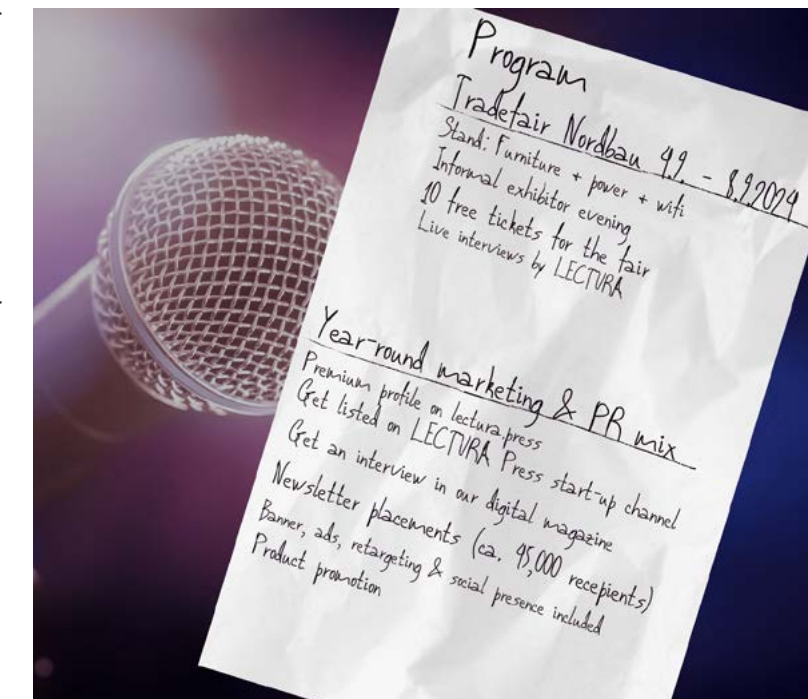 Program
Tradefair Nordbau 4.9. - 8.9.2024
Stand: Furniture + power + wifi
Informal exhibitor evening
10 free tickets for the fair
Live interviews by LECTURA
Year-round marketing & PR mix
Premium profile on lectura.press
Get listed on LECTURA Press start-up channel
Get an interview in our digital magazine
Newsletter placements (ca. 45,000 recepients)
Banner, ads, retargeting & social presence included
Product promotion